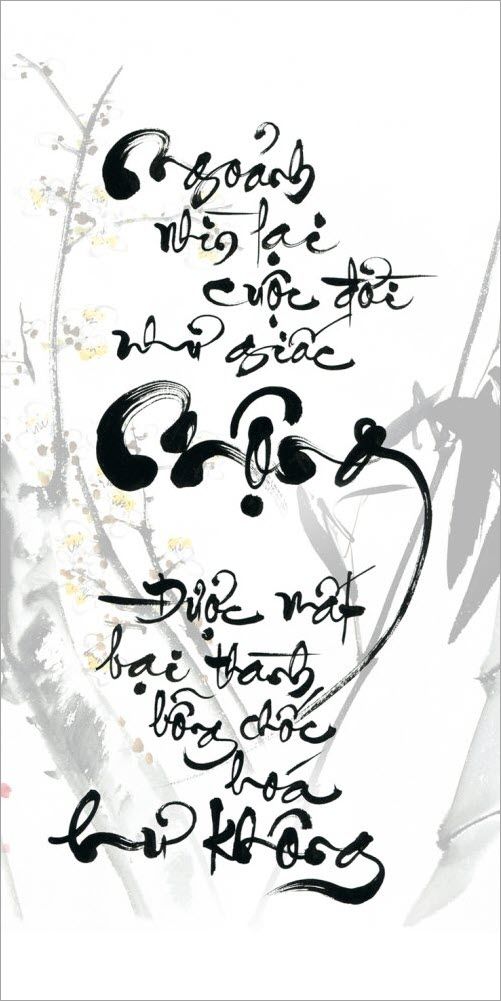 Ngoảnh
nhìn lại
cuộc đời
như giấc
Mộng
Được mất
bại thành
bỗng chốc
hoá
hư không